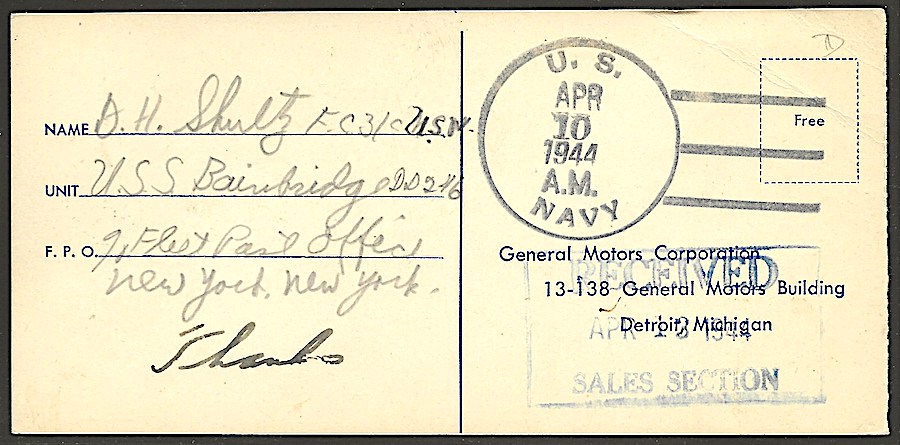 NAME D. H. Shultz F.C 3/c U.S.N.
UNIT U.S.S Bainbridge DD 246
F. P. O. % Fleet Post Office
New York, New York.
Thanks
U. S.
APR
10
1944
A.M.
NAVY
Free
General Motors Corporation
13-138 General Motors Building
Detroit, Michigan
RECEIVED
APR 13 1944
SALES SECTION